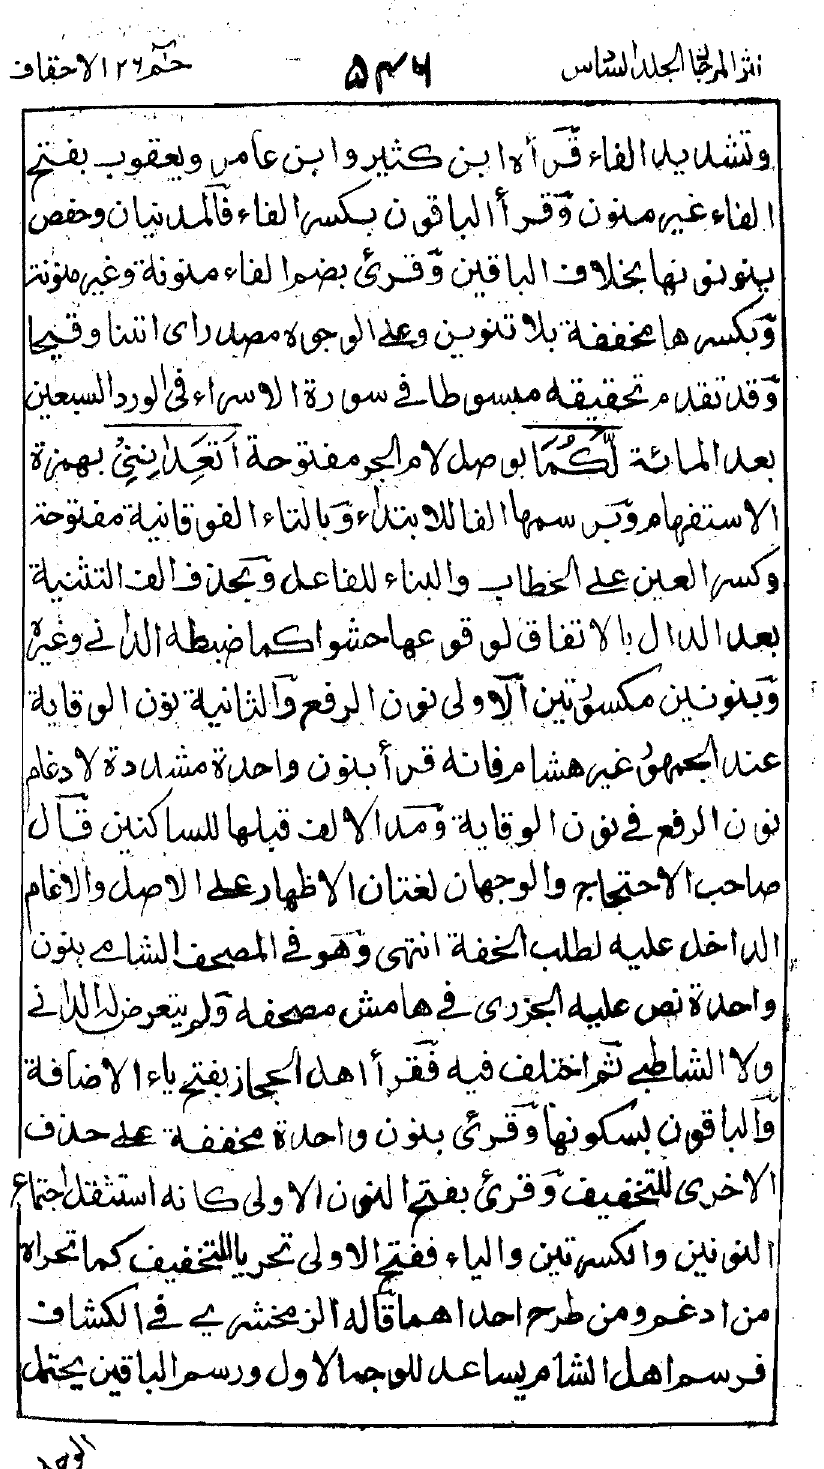 نثر المرجان الجلد السادس ٥٤٦ حٰم ٢٦ الاحقاف
وتشديد الفاء قرأه ابن كثير وابن عامر ويعقوب بفتح
الفاء غير منون وقرأ الباقون بكسر الفاء فالمدنيان وحفص
ينونونها بخلاف الباقين وقرئ بضم الفاء منونة وغير منونة
وبكسرها مخففة بلا تنوين وعلى الوجوه مصدر اى انتنا وقيحا
وقد تقدم تحقيقه مبسوطا في سورة الاسراء في الورد السبعين
بعد المائة لَّكُمَا بوصل لام الجر مفتوحة اَتَعِدَانِنِيْ بهمزة
الاستفهام وبرسمها الفا للابتداء وبالتاء الفوقانية مفتوحة
وكسر العين على الخطاب والبناء للفاعل وبحذف الف التثنية
بعد الدال بالاتفاق لوقوعها حشوا كما ضبطه الداني وغيره
وبنونين مكسورتين الاولى نون الرفع والثانية نون الوقاية
عند الجمهور غير هشام فانه قرأ بنون واحدة مشددة لادغام
نون الرفع في نون الوقاية ومد الالف قبلها للساكنين قال
صاحب الاحتجاج والوجهان لغتان الاظهار على الاصل والادغام
الداخل عليه لطلب الخفة انتهى وهو في المصحف الشامي بنون
واحدة نص عليه الجزرى في هامش مصحفه ولم يتعرض له الداني
ولا الشاطبي ثم اختلف فيه فقرأ اهل الحجاز بفتح ياء الاضافة
والباقون بسكونها وقرئ بنون واحدة مخففة على حذف
الاخرى للتخفيف وقرئ بفتح النون الاولى كانه استثقل اجتماع
النونين والكسرتين والياء ففتح الاولى تحريا للتخفيف كما تحراه
من ادغم ومن طرح احداهما قاله الزمخشري في الكشاف
فرسم اهل الشام يساعد للوجه الاول ورسم الباقين يحتمل